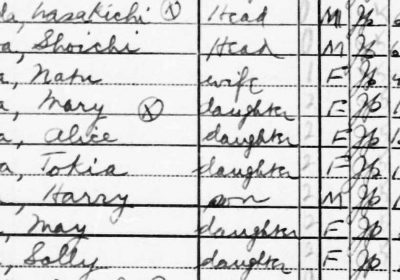 da, Masakichi ⓧ Head M Jp
a, Shoichi Head M Jp
a, Natu wife F Jp
a, Mary ⓧ daughter F Jp
a, Alice daughter F Jp
a, Tokia daughter F Jp
, Harry son M Jp
, May daughter F Jp
, Sally daughter F Jp